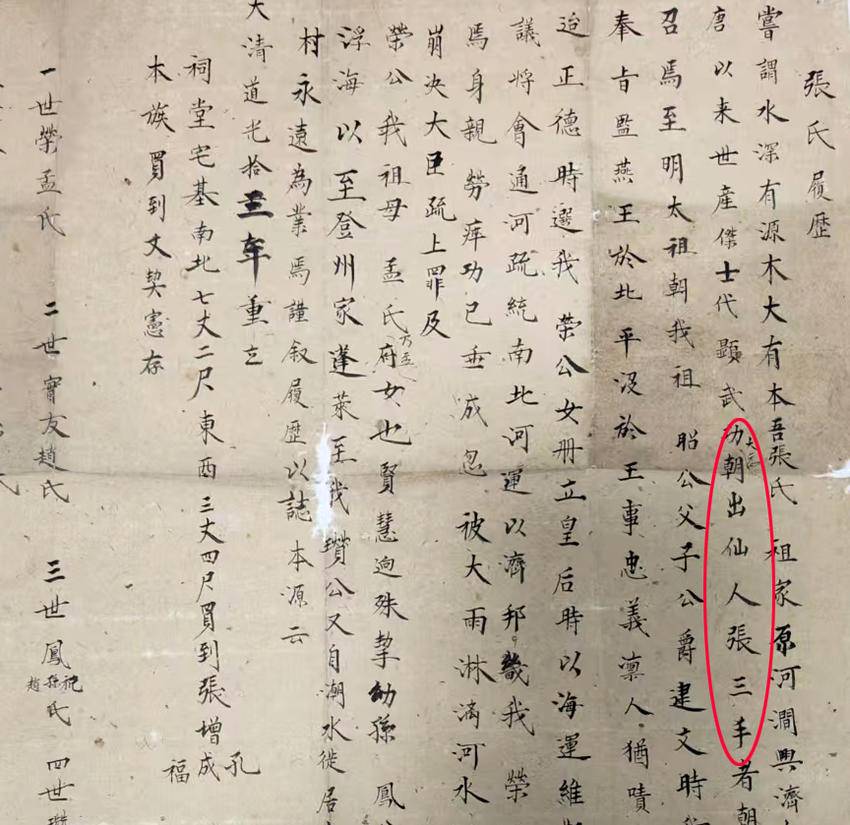 張氏履歷
嘗謂水深有源木大有本吾張氏 祖家原河澗興濟
唐以来世産傑士代顯武功朝出仙人張三手者朝
召焉至明太祖朝我祖 昭公父子公爵建文時
奉旨監燕王於北平没於王事忠義凛人猶嘖
迨正德時選我 榮公女册立皇后時以海運維
議將會通河疏統南北河運以濟邦畿我 榮
焉身親勞瘁功已垂成忽 被大雨淋滿河水
崩决大臣疏上罪及
榮公我祖母 孟氏乃孟府女也賢慧迥殊挈幼孫 鳳
浮海以至登州家蓬莱至我瓚公又自潮水徙居
村永遠為業焉謹叙履歷以誌本源云
大清道光拾三年重立
祠堂宅基南北七丈二尺東西三丈四尺買到張增孔成福
本族買到文契憲存
一世榮孟氏 二世寳友趙氏 三世鳳祝孫趙氏 四世瓚